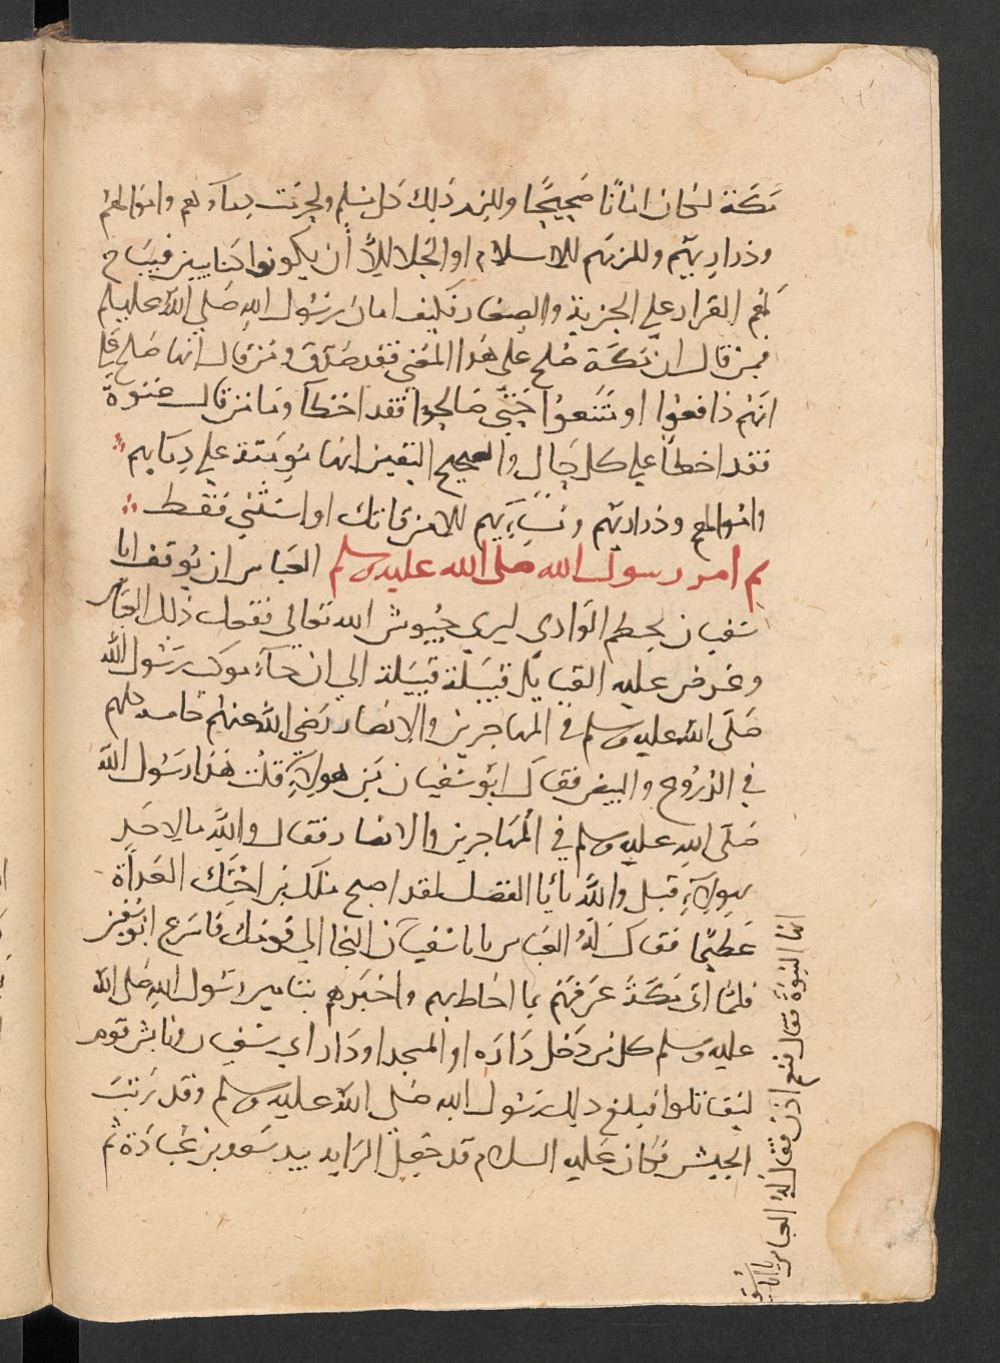 مكة لكان امانا صحيحا وللزم ذلك كل مسلم ولحرمت دماؤهم واموالهم
وذراريهم وللزمهم للاسلام او الجلا الا أن يكونوا كتابيين فيباح
لهم القرار على الجزية والصغار فكيف امان رسول الله صلى الله عليه وسلم
فمن قال ان مكة صلح على هذا المعنى فقد صدق ومن قال انها صلح على
انهم دافعوا او متنعوا حتى صالحوا فقد اخطا واما من قال عنوة
فقد اخطأ على كل حال والصحيح اليقين انها مومنة على دمايهم
واموالهم وذراريهم ونسايهم الا من قاتل او استثني فقط
ثم أمر رسول الله صلى الله عليه وسلم العباس ان يوقف ابا
سفيان بخطم الوادي ليرى جيوش الله تعالى ففعل ذلك العباس
وعرض عليه القبايل قبيلة قبيلة الى ان جاء موكب رسول الله
صلى الله عليه وسلم في المهاجرين والانصار رضى الله عنهم خاصة كلهم
في الدروع والبيض فقال ابو سفيان من هولاء قلت هذا رسول الله
صلى الله عليه وسلم في المهاجرين والانصار فقال والله ما لاحد
بهولاء قبل والله يا أبا الفضل لقد اصبح ملك بن اخيك الغداة
عظيما فقال له العباس يا ابا سفيان النجا الى قومك فاسرع ابو سفين
فلما اتى مكة عرفهم بما احاط بهم واخبرهم بتامين رسول الله صلى الله
عليه وسلم كل من دخل داره او المسجد او دار ابي سفين وتابش قوم
ليقاتلوا فبلغ ذلك رسول الله صلى الله عليه وسلم وقد رتب
الجيش فكان عليه السلام قد جعل الراية بيد سعد بن عبادة ثم
انها النبوة فقال نعم اذن فقال له العباس يا ابا سفين